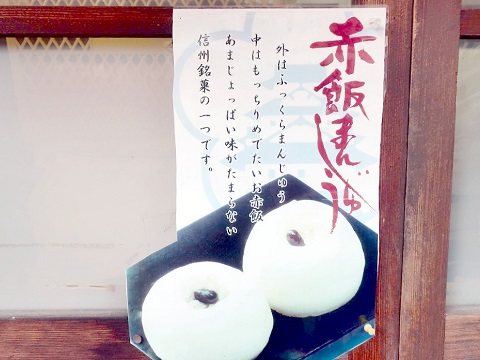 赤飯まんじゅう
外はふっくらまんじゅう
中はもっちりめでたいお赤飯
あまじょっぱい味がたまらない
信州銘菓の一つです。